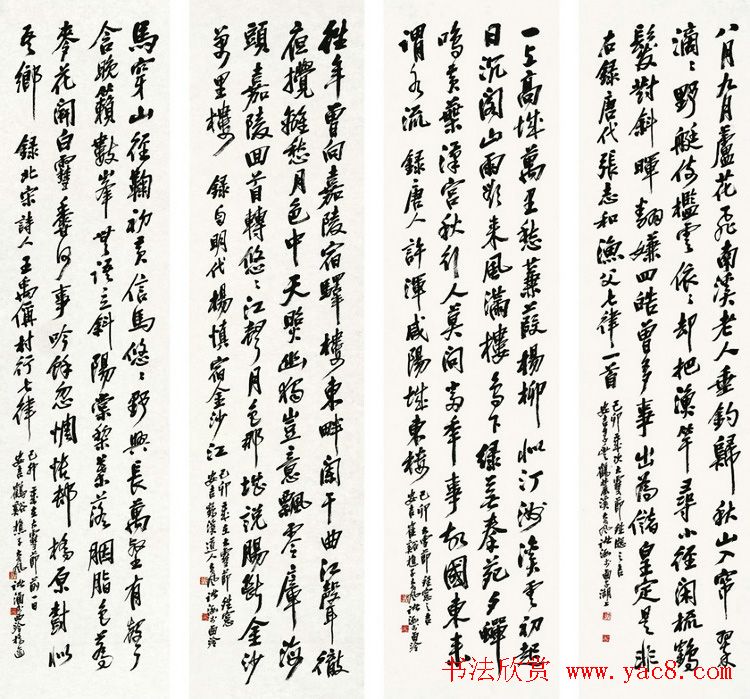 八月九月蘆花飛南溪老人垂釣歸秋山入帘翠
滴滴野艇倚檻雲依依却把漁竿尋小徑閑梳鶴
髮對斜暉翻嫌四皓曾多事出為儲皇定是非
右錄唐代張志和漁父七律一首
一上高城萬里愁蒹葭楊柳似汀洲溪雲初起
日沉閣山雨欲來風滿樓鳥下綠蕪秦苑夕蟬
鳴黃葉漢宮秋行人莫問當年事故國東來
渭水流 錄唐人許渾咸陽城東樓
往年曾向嘉陵宿驛樓東畔闌干曲江聲徹
夜攪離愁月色中天照幽獨豈意飄零瘴海
頭嘉陵回首轉悠悠江聲月色那堪說腸斷金沙
萬里樓 錄自明代楊慎宿金沙江
馬穿山徑菊初黃信馬悠悠野興長萬壑有聲
含晚籟數峯無語立斜陽棠梨葉落胭脂色蕎
麥花開白雪香何事吟餘忽惆悵村橋原樹似
吾鄉 錄北宋詩人王禹偁村行七律
书法欣赏 www.yac8.com